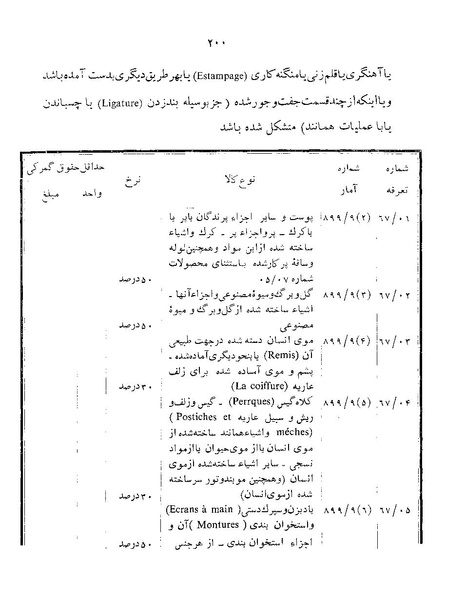 ۲۰۰
یا آهنگری یا قلم زنی یا منگنه کاری (Estampage) یا بهر طریق دیگری بدست آمده باشد
و یا اینکه از چند قسمت جفت و جور شده ( جز بوسیله بند زدن (Ligature) یا چسباندن
یا با عملیات همانند) متشکل شده باشد
شماره تعرفه شماره آمار نوع کالا نرخ حداقل حقوق گمرکی
واحد مبلغ
۶۷/۰۱ ۸۹۹/۹(۲) پوست و سایر اجزاء پرندگان با پر یا
با کرک ـ پر و اجزاء پر ـ کرک و اشیاء
ساخته شده از این مواد و همچنین لوله
و ساقهٔ پر کار شده باستثنای محصولات
شماره ۰۵/۰۷ ۵۰ درصد
۶۷/۰۲ ۸۹۹/۹(۳) گل و برگ و میوهٔ مصنوعی و اجزاء آنها ـ
اشیاء ساخته شده از گل و برگ و میوهٔ
مصنوعی ۵۰ درصد
۶۷/۰۳ ۸۹۹/۹(۴) موی انسان دسته شده در جهت طبیعی
آن (Remis) یا بنحو دیگری آماده شده ـ
پشم و موی آماده شده برای زلف
عاریه (La coiffure) ۳۰ درصد
۶۷/۰۴ ۸۹۹/۹(۵) کلاه گیس (Perrques) ـ گیس و زلف و
ریش و سبیل عاریه Postiches et)
méches) و اشیاء همانند ساخته شده از
موی انسان یا از موی حیوان یا از مواد
نسجی ـ سایر اشیاء ساخته شده از موی
انسان (و همچنین مو بند و تور سر ساخته
شده از موی انسان) ۳۰ درصد
۶۷/۰۵ ۸۹۹/۹(۶) بادبزن و سپرک دستی (Ecrans à main)
و استخوان بندی (Montures) آن و
اجزاء استخوان بندی ـ از هر جنس ۵۰ درصد